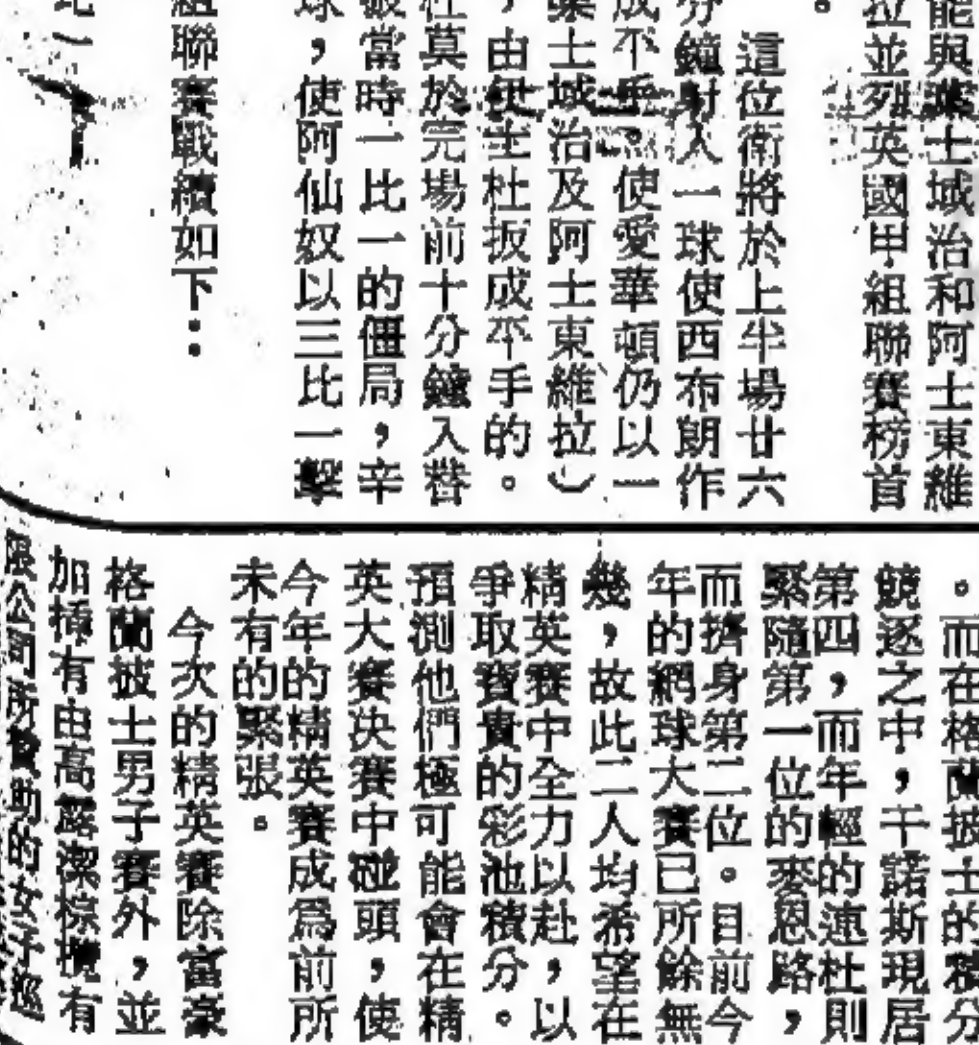 能與葉士域治和阿士東維
拉並列英國甲組聯賽榜首
。
這位衛將於上半場廿六
分鐘射入一球使西布朗作
成不乎。使愛華頓仍以一
葉士域治及阿士東維拉）
，由使主杜扳成平手的。
杜莫於完場前十分鐘入替
破當時一比一的僵局，辛
球，使阿仙奴以三比一擊
組聯賽戰績如下：
比一
。而在格蘭披士的積分
競逐之中，干諾斯現居
第四，而年輕的連杜則
緊隨第一位的麥恩路，
而擠身第二位。目前今
年的網球大賽已所餘無
幾，故此二人均希望在
精英賽中全力以赴，以
爭取寶貴的彩池積分。
預測他們極可能會在精
英大賽決賽中碰頭，使
今年的精英賽成爲前所
未有的緊張。
今次的精英賽除富豪
格蘭披士男子賽外，並
加插有由高露潔棕欖有
限公司所贊助的女子巡